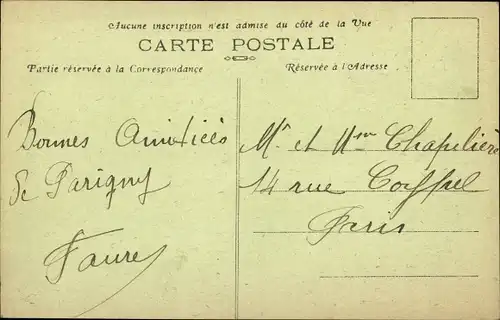 Aucune inscription n'est admise du côté de la Vue
CARTE POSTALE
Partie réservée à la Correspondance
Réservée à l'Adresse
Bonnes Amitiés
de Parigny
Faure
Mr et Mme Chapelière
14 rue
Paris